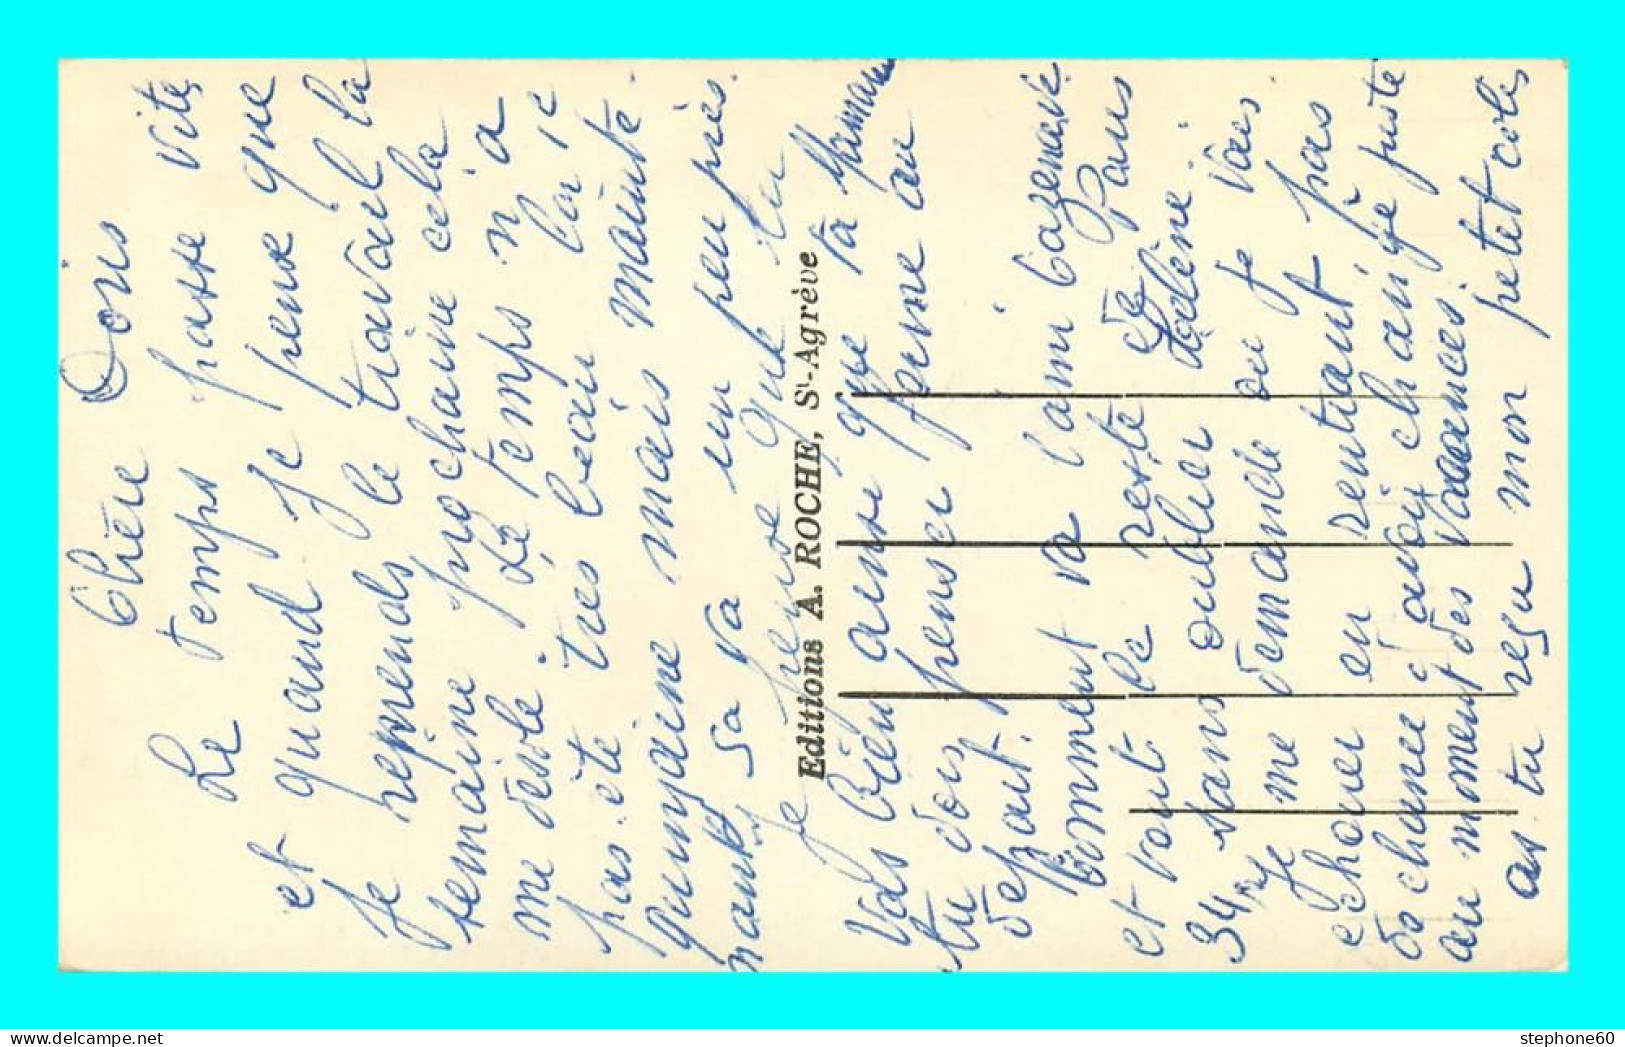 Chère Doris
Le temps passe vite
et quand je pense que
je reprends le travail la
semaine prochaine cela
me désole. Le temps n'a
pas été très beau la 1e
quinzaine mais maintenant
sa va un peu près.
je pense que tu
vas bien ainsi que ta maman
tu dois penser ferme au
départ.
Comment va l'ami Cazenave
et tout le reste de Paris
sans oublier
Je me demande ou je vais
échouer en rentrant pas
de chance d'avoir changé juste
au moment des vacances
as-tu reçu mon petit colis
Editions A. ROCHE, St-Agrève
stephone60